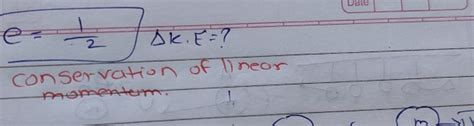 Date
e = 1/2 ΔK.E = ?
conservation of linear
momentum.
m